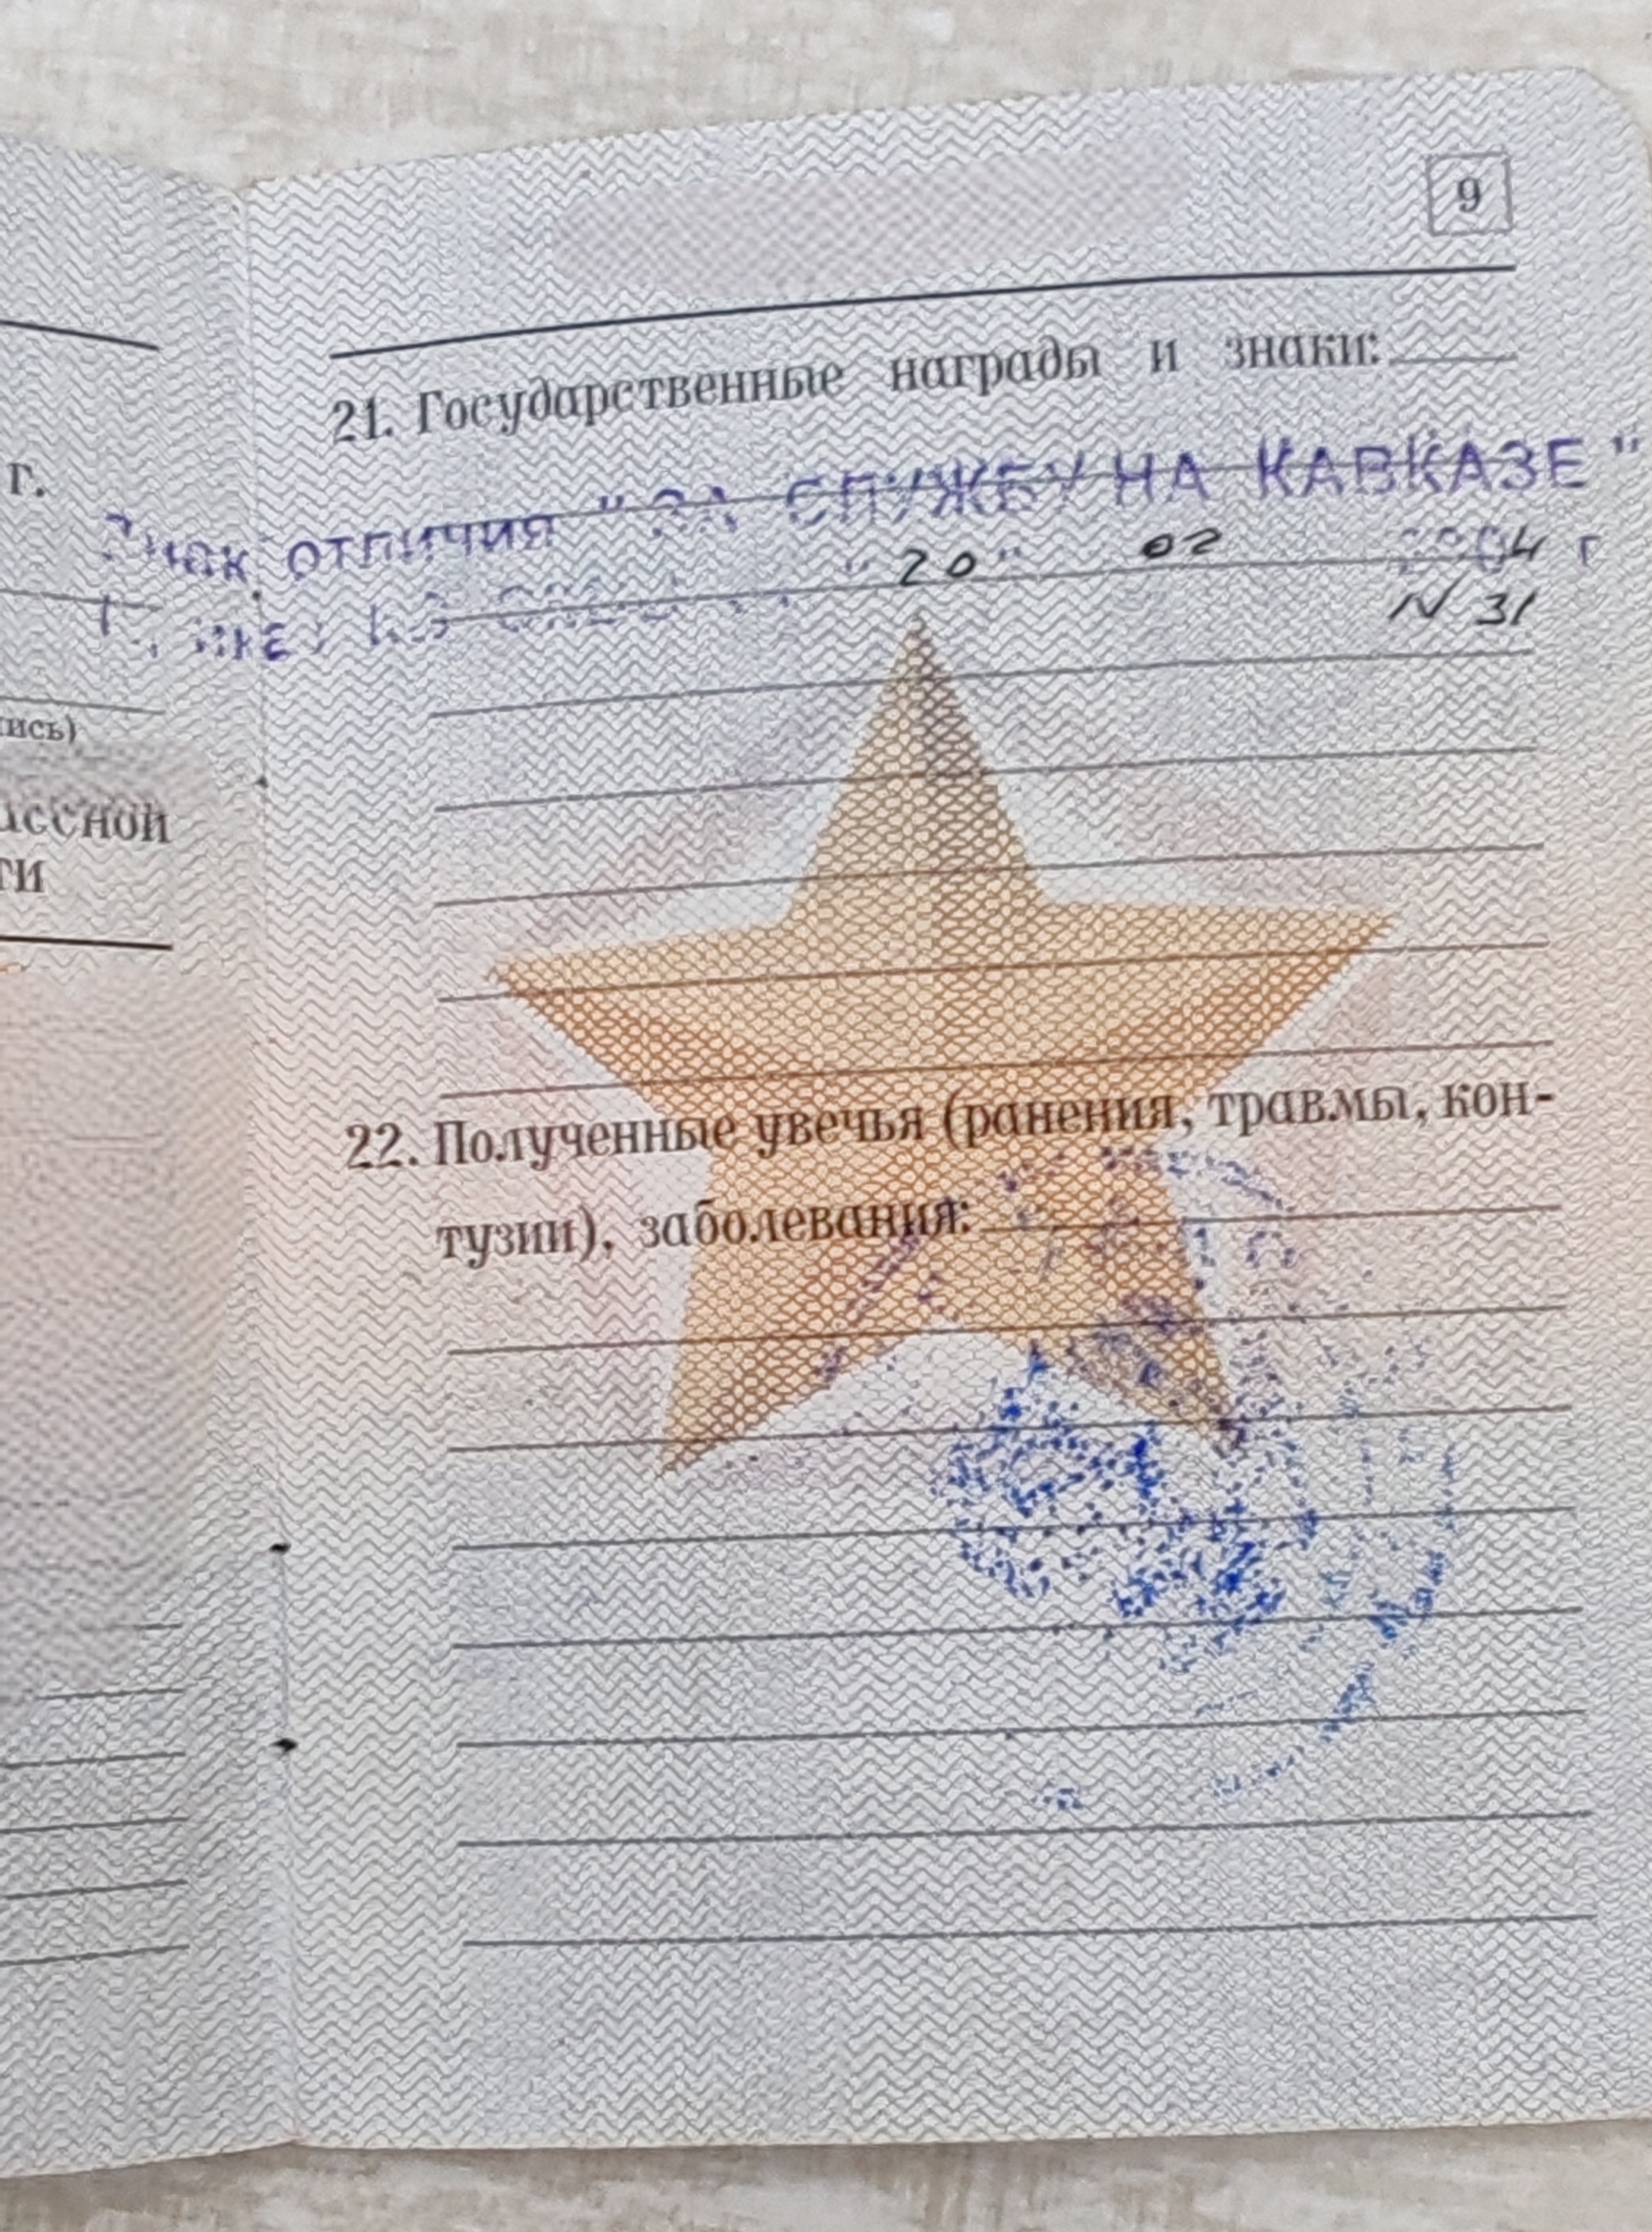 9
21. Государственные награды и знаки:
г.
Знак отличия "ЗА СЛУЖБУ НА КАВКАЗЕ"
"20" 02 2004 г
N 31
ись)
ассной
ти
22. Полученные увечья (ранения, травмы, кон-
тузии), заболевания: